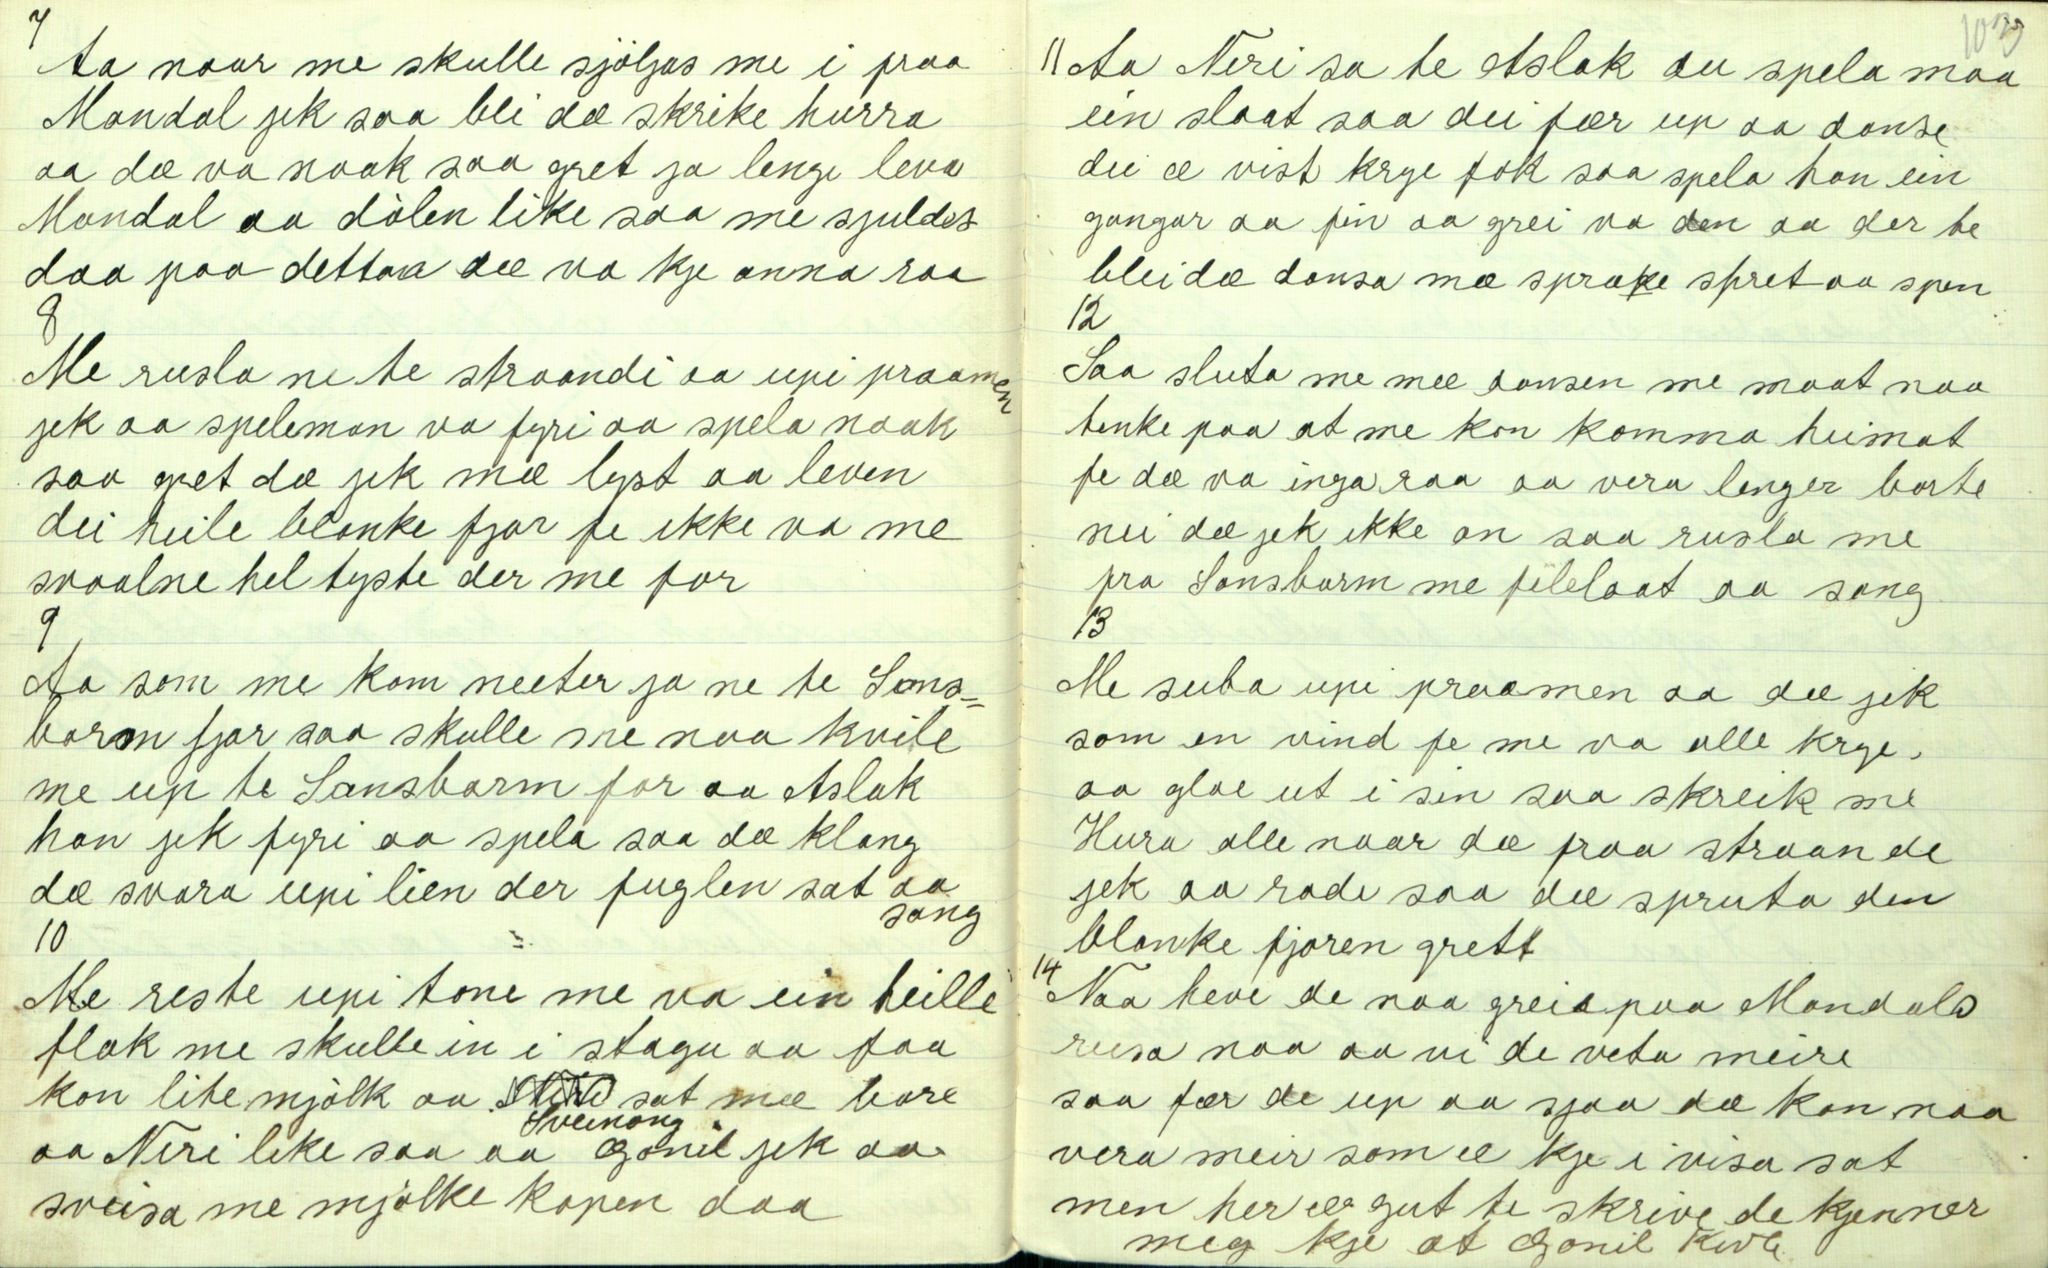 7
Aa naar me skulle sjöljas me i fraa
Mandal jek saa blei dæ skrike hurra
aa dæ va naak saa gret ja lenge leva
Mandal aa dölen like saa me sjuldes
daa paa dettaa dæ va kje anna raa
8
Me rusla ne te straandi aa upi praamen
jek aa speleman va fyri aa spela naak
saa gret dæ jek mæ lyst aa leven
dei heile blanke fjor fe ikke va me
svaalne hel tyste der me for
9
Aa som me kom neeter ja ne te Sans=
barm fjor saa skulle me naa kvile
me up te Sansbarm for aa Aslak
han jek fyri aa spela saa dæ klang
dæ svara upi lien der fuglen sat aa
sang
10
Me reste upi tone me va ein heille
flok me skulle in i stagu aa faa
kon lite mjölk aa sat mæ bore
Sveinong
aa Neri like saa aa Gonil jek aa
sveisa me mjölke kopen daa
1039
11 Aa Neri sa te Aslak du spela maa
ein slaat saa dei fær up aa danse
dei æ vist krye fok saa spela han ein
gangar aa fin aa grei va den aa der te
blei dæ dansa mæ sprake spret aa spen
12
Saa sluta me mæ dansen me maat naa
tenke paa at me kon komma heimat
fe dæ va inga raa aa vera lenger borte
nei dæ jek ikke an saa rusla me
fra Sansbarm me felelaat aa sang
13
Me suba upi praamen aa dæ jek
som en vind fe me va alle krye.
aa glae ut i sin saa skreik me
Hura alle naar dæ fraa straande
jek aa rode saa dæ spruta den
blanke fjoren grett
14
Naa heve de naa greia paa Mandals
reisa naa aa vi de veta meire
saa fær de up aa sjaa dæ kan naa
vera meir som æ kje i visa sat
men her ær gut te skrive de kjenner
meg kje at Gonil Kivle